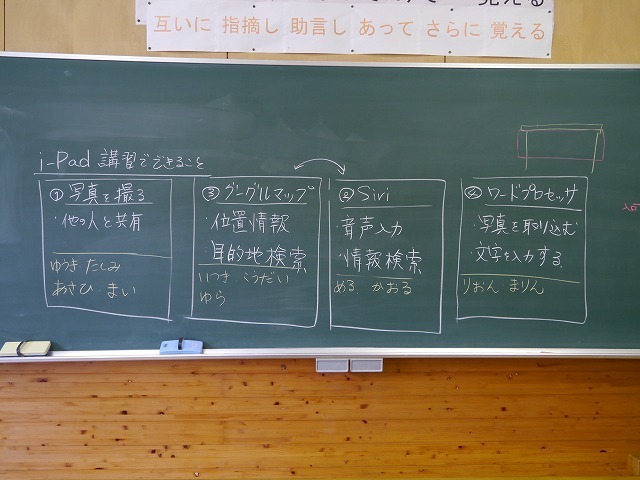 互いに 指摘し 助言し あって さらに 覚える
i-Pad 講習でできること
①写真を撮る
・他の人と共有
ゆうき たしみ
あさひ まい
③グーグルマップ
・位置情報
・目的地検索
いつき こうだい
ゆら
②Siri
・音声入力
・情報検索
める かおる
④ワードプロセッサ
・写真を取り込む
・文字を入力する
りおん まりん